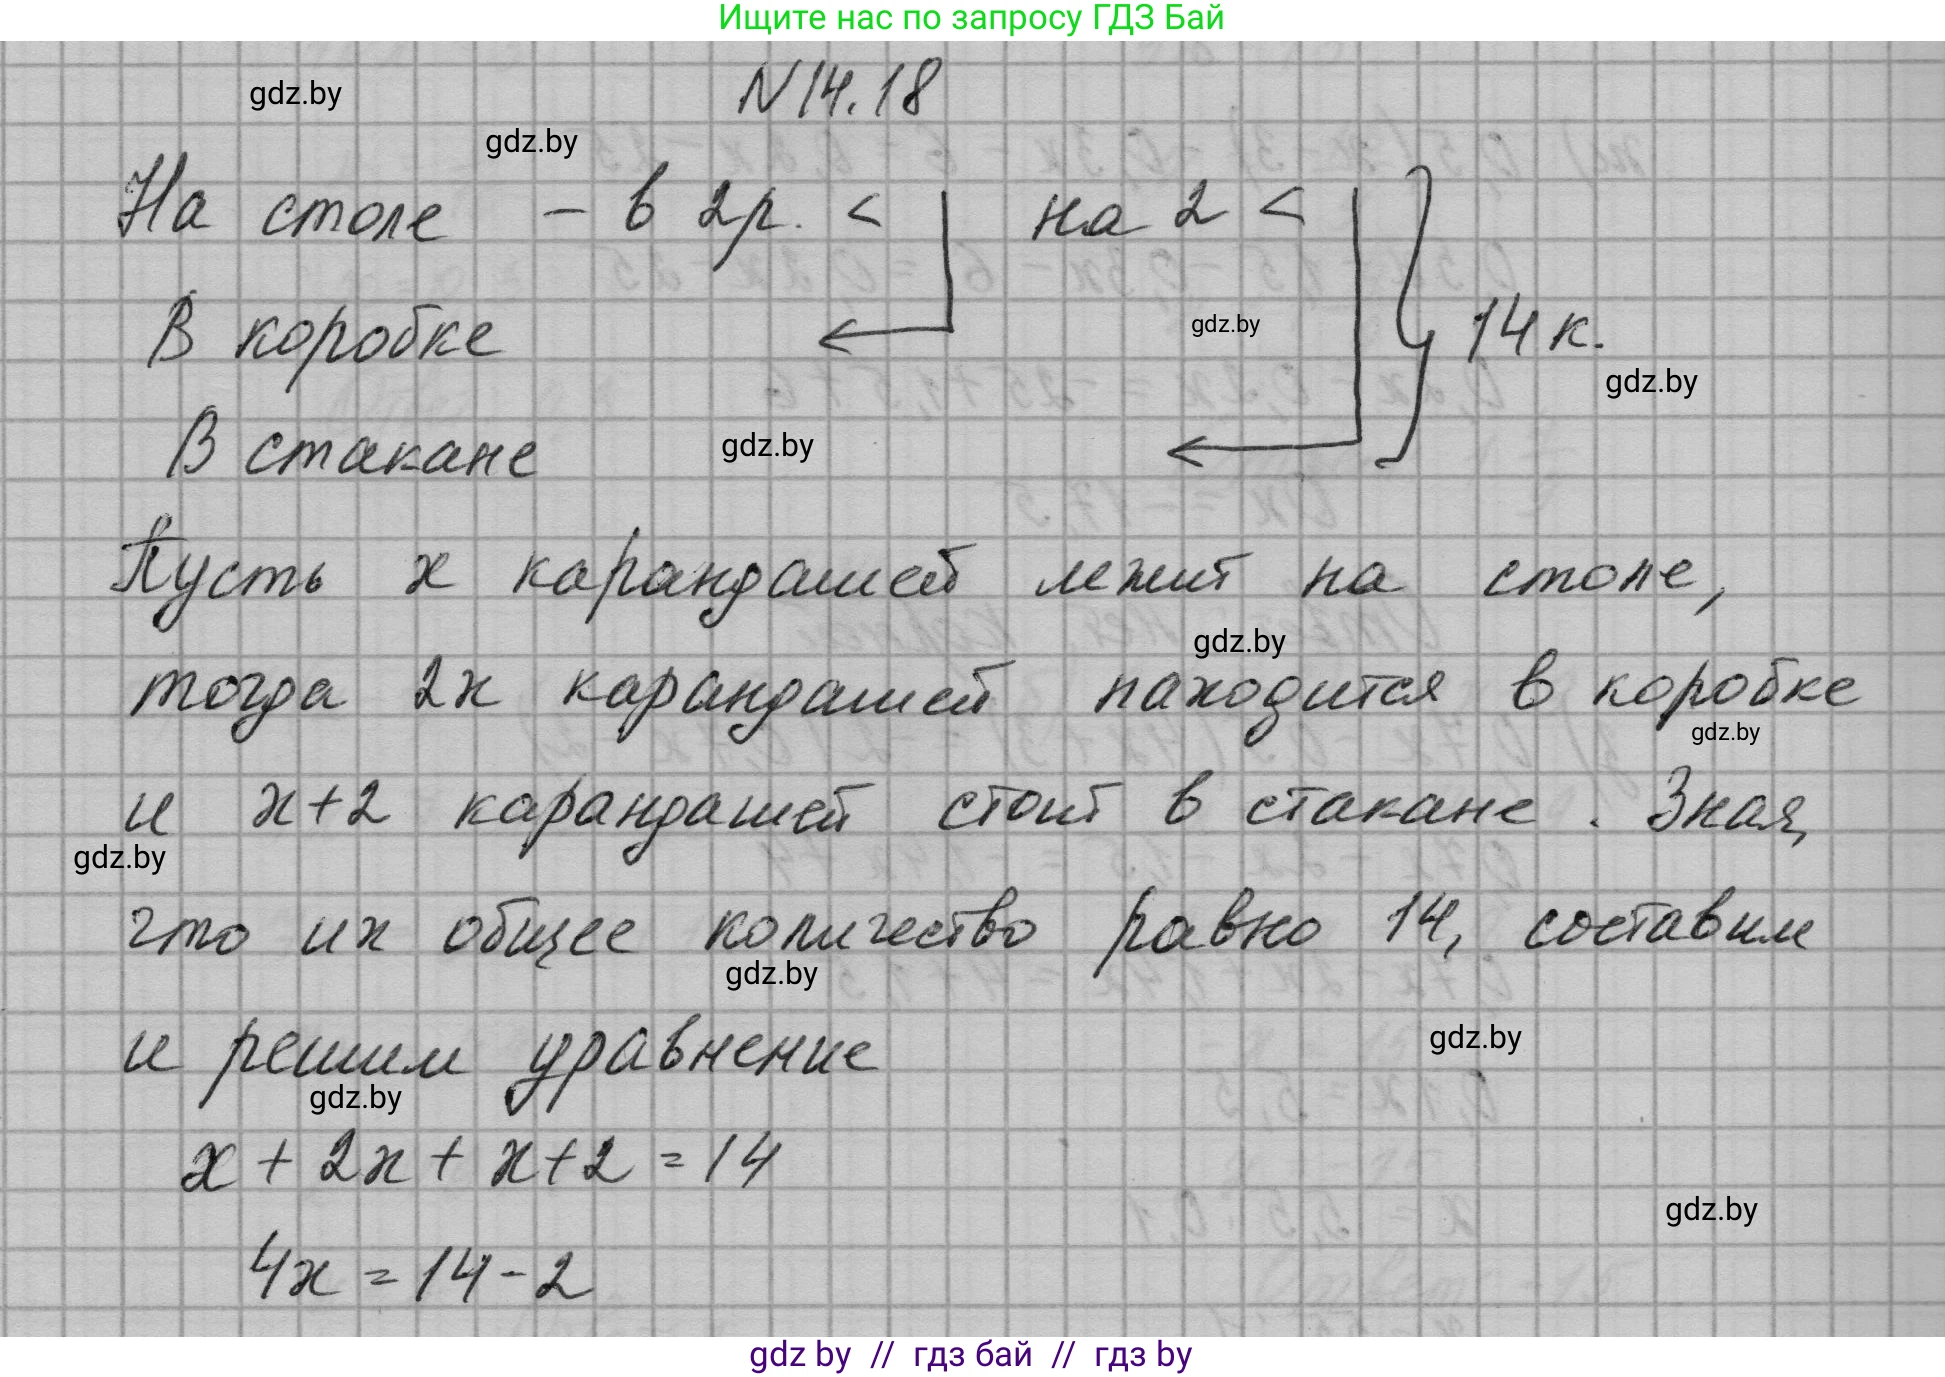 Ищите нас по запросу ГДЗ Бай
N14.18
gdz.by
gdz.by
На столе - в 2р. < на 2 <
В коробке
gdz.by
14 к.
gdz.by
В стакане
gdz.by
Пусть х карандашей лежит на столе,
gdz.by
тогда 2х карандашей находится в коробке
gdz.by
и х+2 карандашей стоит в стакане. Зная,
gdz.by
что их общее количество равно 14, составим
gdz.by
и решим уравнение
gdz.by
gdz.by
х + 2х + х+2 = 14
gdz.by
4х = 14-2
gdz by // гдз бай // гдз by